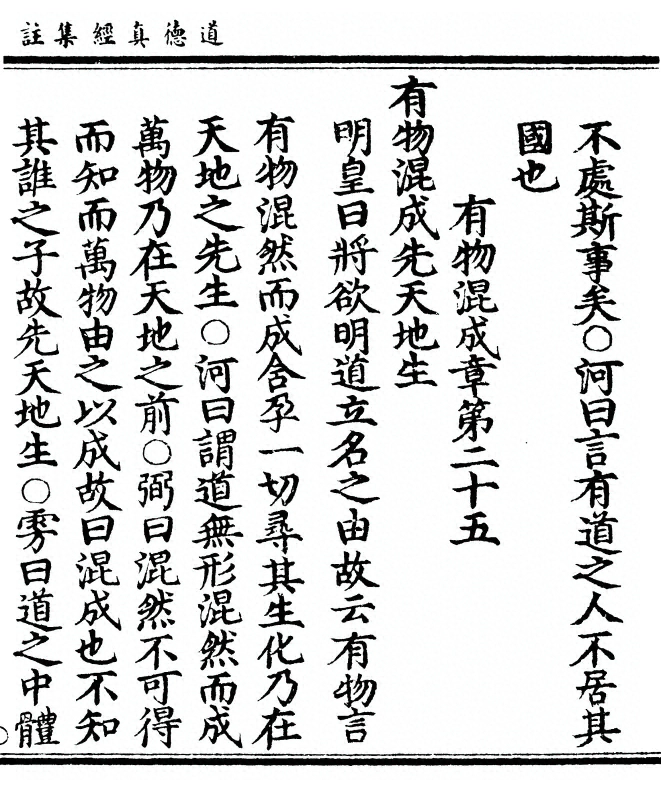 道德真經集註
不處斯事矣○河曰言有道之人不居其
國也
有物混成章第二十五
有物混成先天地生
明皇曰將欲明道立名之由故云有物言
有物混然而成含孕一切尋其生化乃在
天地之先生○河曰謂道無形混然而成
萬物乃在天地之前○弼曰混然不可得
而知而萬物由之以成故曰混成也不知
其誰之子故先天地生○雱曰道之中體